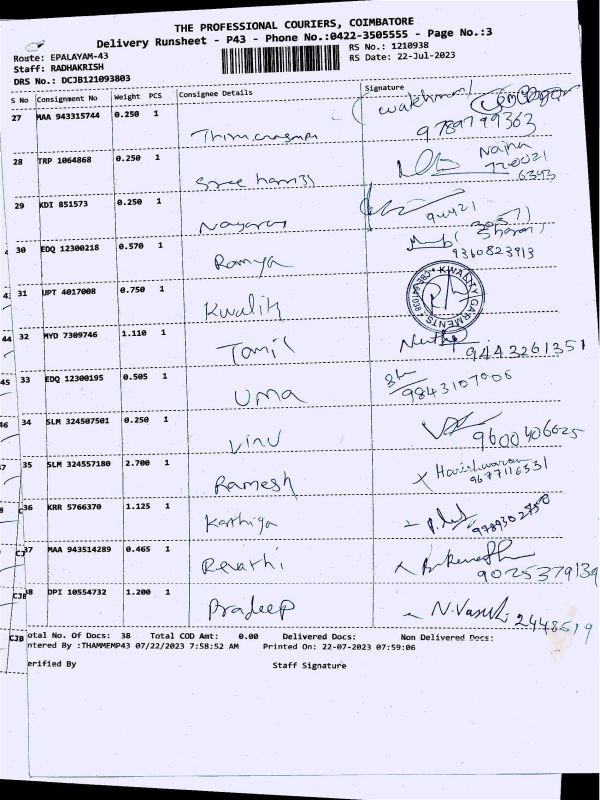 THE PROFESSIONAL COURIERS, COIMBATORE
Delivery Runsheet - P43 - Phone No.:0422-3505555 - Page No.:3
Route: EPALAYAM-43
RS No.: 1210938
Staff: RADHAKRISH
RS Date: 22-Jul-2023
DRS No.: DCJB121093803
S No Consignment No Weight PCS Consignee Details Signature
27 MAA 943315744 0.250 1
9789799363
28 TRP 1064868 0.250 1
29 KDI 851573 0.250 1
30 EDQ 12300218 0.570 1 Ramya
9360823913
31 UPT 4017008 0.750 1 Kwality KWALITY GARMENTS
44 32 MYD 7309746 1.110 1 Tamil 9443261351
45 33 EDQ 12300195 0.505 1 Uma
46 34 SLM 324507501 0.250 1 Vinu 9600406025
35 SLM 324557180 2.700 1 Ramesh Harishwaran
9677116531
36 KRR 5766370 1.125 1 Karthiga
37 MAA 943514289 0.465 1 Revathi 9025379139
DPI 10554732 1.200 1 Pradeep N. Vasuki 2448519
otal No. Of Docs: 38 Total COD Amt: 0.00 Delivered Docs: Non Delivered Docs:
ntered By :THAMMEMP43 07/22/2023 7:58:52 AM Printed On: 22-07-2023 07:59:06
erified By Staff Signature